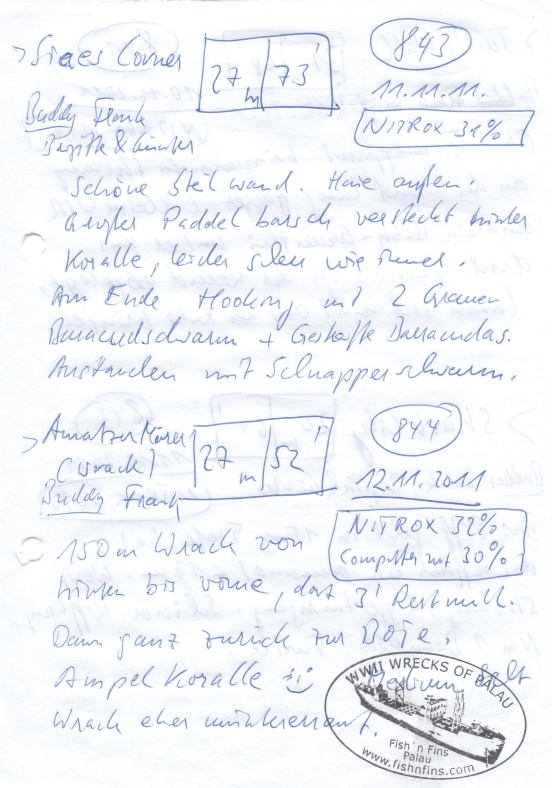 > Siaes Corner
27 m | 73'
843
11.11.11.
NITROX 31%
Buddy Frank
Birgitte & Günter
Schöne Steilwand. Haie außen.
großer Paddelbarsch versteckt hinter
Koralle, leider scheu wie immer.
Am Ende Hooking mit 2 Grauen
Barracudschwarm + Gestreifte Barracudas.
Austauchen mit Schnapperschwarm.
> Amatzu Maru
(Wrack)
27 m | 52'
844
12.11.2011
Buddy Frank
NITROX 32%
Computer mit 30%
150m Wrack von
hinten bis vorne, dat 3' Restnull.
Dann ganz zurück zur Boje.
Ampel Koralle
Wrack eher uninteressant.
WWII WRECKS OF PALAU
Fish 'n Fins
Palau
www.fishnfins.com